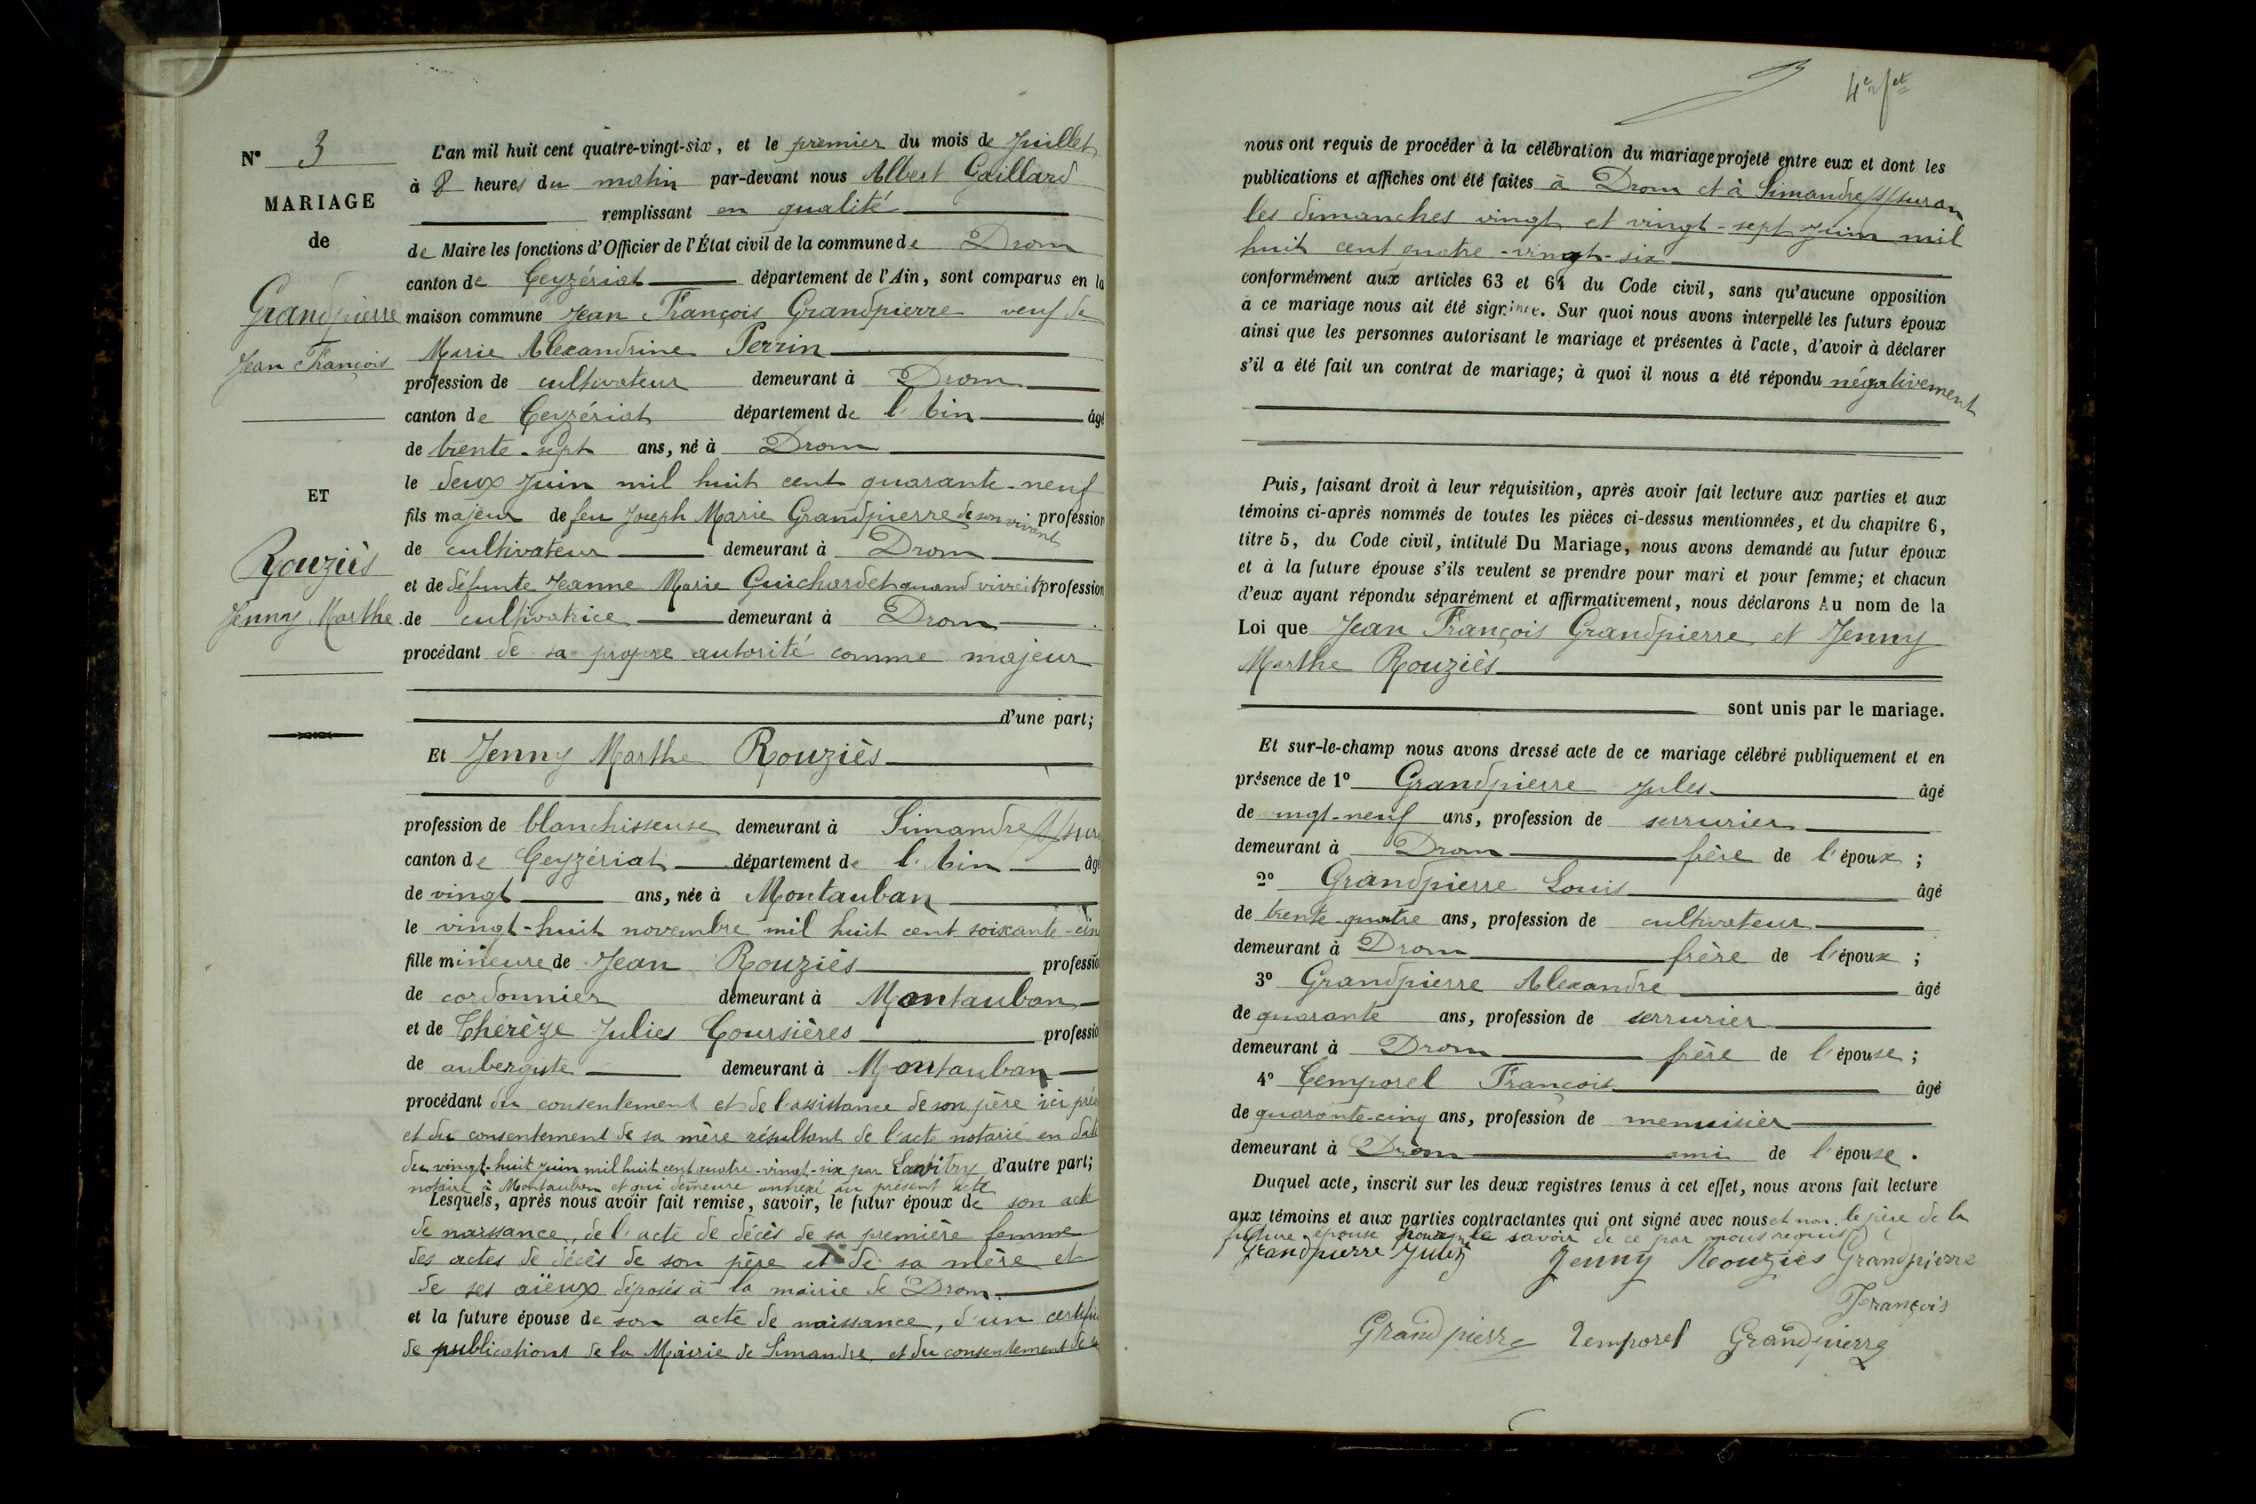 N° 3
MARIAGE
de
Grandpierre
Jean François
ET
Rouziès
Jenny Marthe
L'an mil huit cent quatre-vingt-six, et le premier du mois de Juillet
à 8 heures du matin par-devant nous Albert Gaillard
remplissant en qualité
de Maire les fonctions d'Officier de l'État civil de la commune de Drom
canton de Ceyzériat département de l'Ain, sont comparus en la
maison commune Jean François Grandpierre veuf de
Marie Alexandrine Perrin
profession de cultivateur demeurant à Drom
canton de Ceyzériat département de l'Ain âgé
de trente-sept ans, né à Drom
le deux Juin mil huit cent quarante-neuf
fils majeur de feu Joseph Marie Grandpierre de son vivant profession
de cultivateur demeurant à Drom
et de défunte Jeanne Marie Guichardet quand vivait profession
de cultivatrice demeurant à Drom
procédant de sa propre autorité comme majeur
d'une part;
Et Jenny Marthe Rouziès
profession de blanchisseuse demeurant à Simandre s/sur
canton de Ceyzériat département de l'Ain âgé
de vingt ans, née à Montauban
le vingt-huit novembre mil huit cent soixante-cin
fille mineure de Jean Rouziès professio
de cordonnier demeurant à Montauban
et de Thérèze Julies Coursières professio
de aubergiste demeurant à Montauban
procédant du consentement et de l'assistance de son père ici prés
et du consentement de sa mère résultant de l'acte notarié en date
du vingt-huit juin mil huit cent quatre-vingt-six par Lavitry d'autre part;
notaire à Montauban et qui demeure annexé au présent acte
Lesquels, après nous avoir fait remise, savoir, le futur époux de son acte
de naissance, de l'acte de décès de sa première femme
des actes de décès de son père et de sa mère et
de ses aïeux déposés à la mairie de Drom.
et la future épouse de son acte de naissance, d'un certific
de publications de la Mairie de Simandre, et du consentement de sa
4e fet
nous ont requis de procéder à la célébration du mariage projeté entre eux et dont les
publications et affiches ont été faites à Drom et à Simandre s/suran
les dimanches vingt et vingt-sept juin mil
huit cent quatre-vingt-six
conformément aux articles 63 et 64 du Code civil, sans qu'aucune opposition
à ce mariage nous ait été signifiée. Sur quoi nous avons interpellé les futurs époux
ainsi que les personnes autorisant le mariage et présentes à l'acte, d'avoir à déclarer
s'il a été fait un contrat de mariage; à quoi il nous a été répondu négativement
Puis, faisant droit à leur réquisition, après avoir fait lecture aux parties et aux
témoins ci-après nommés de toutes les pièces ci-dessus mentionnées, et du chapitre 6,
titre 5, du Code civil, intitulé Du Mariage, nous avons demandé au futur époux
et à la future épouse s'ils veulent se prendre pour mari et pour femme; et chacun
d'eux ayant répondu séparément et affirmativement, nous déclarons Au nom de la
Loi que Jean François Grandpierre et Jenny
Marthe Rouziès
sont unis par le mariage.
Et sur-le-champ nous avons dressé acte de ce mariage célébré publiquement et en
présence de 1° Grandpierre Jules âgé
de vingt-neuf ans, profession de serrurier
demeurant à Drom frère de l'époux;
2° Grandpierre Louis âgé
de trente-quatre ans, profession de cultivateur
demeurant à Drom frère de l'époux;
3° Grandpierre Alexandre âgé
de quarante ans, profession de serrurier
demeurant à Drom frère de l'épouse;
4° Temporel François âgé
de quarante-cinq ans, profession de menuisier
demeurant à Drom ami de l'épouse.
Duquel acte, inscrit sur les deux registres tenus à cet effet, nous avons fait lecture
aux témoins et aux parties contractantes qui ont signé avec nous et non le père de la
future épouse pour ne le savoir de ce par nous requis
Grandpierre Jules Jenny Rouziès Grandpierre
François
Grandpierre Temporel Grandpierre